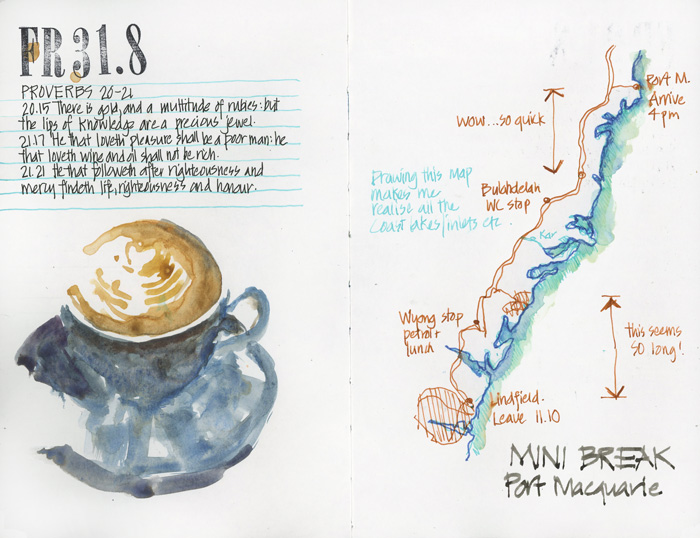 FR 31.8
PROVERBS 20-21
20.15 There is gold, and a multitude of rubies: but
the lips of knowledge are a precious jewel.
21.17 He that loveth pleasure shall be a poor man: he
that loveth wine and oil shall not be rich.
21.21 He that followeth after righteousness and
mercy findeth life, righteousness and honour.
Port M.
Arrive
4pm
WOW...so quick
Drawing this map
makes me
realise all the
coast lakes/inlets etc
Bulahdelah
WC stop
Wyong stop
petrol+
lunch
this seems
SO long!
Lindfield.
Leave 11.10
MINI BREAK
Port Macquarie